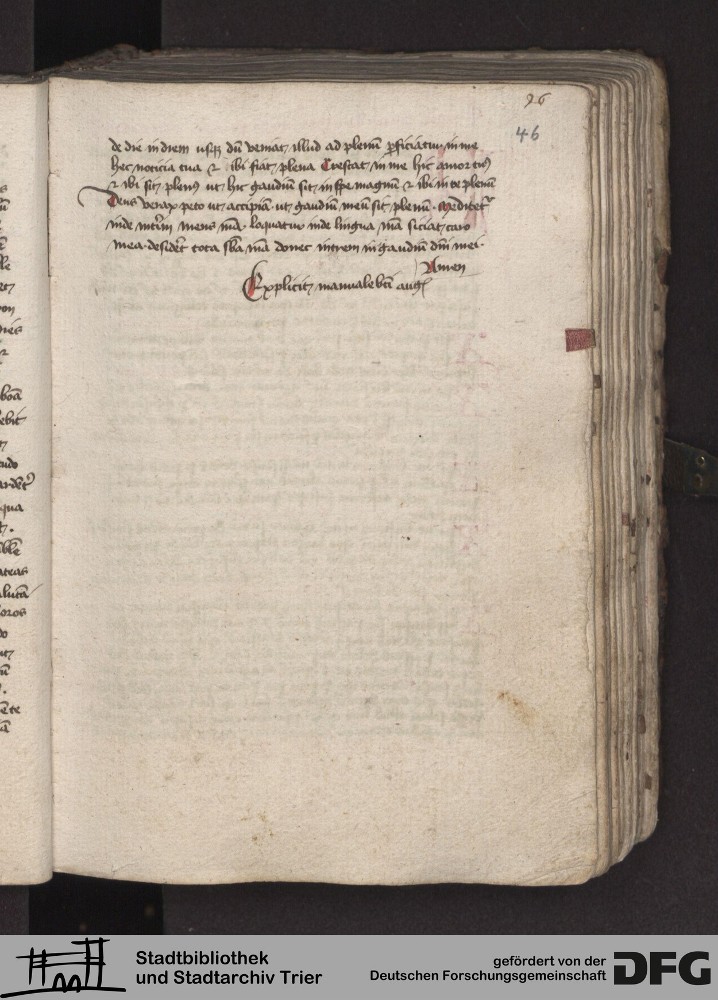 96
46
de die in diem usqꝫ dū veniat illud ad plenū ꝑficiatur in me
hec noticia tua ⁊ ibi fiat plena Crescat in me hic amor tuꝰ
⁊ ibi sit plenꝰ ut hic gaudiū sit in spe magnū ⁊ ibi in te plenū
Deus verax peto ut accipiā ut gaudiū meū sit plenū. Meditetᷣ
inde intim̄ mens mā. loquatur inde lingua mā siciat caro
mea. desidet̄ tota sb̄a mā donec intrem in gaudiū dn̄i mei.
Amen
Explicit manuale bt̄i aug
Stadtbibliothek
und Stadtarchiv Trier
gefördert von der
Deutschen Forschungsgemeinschaft
DFG